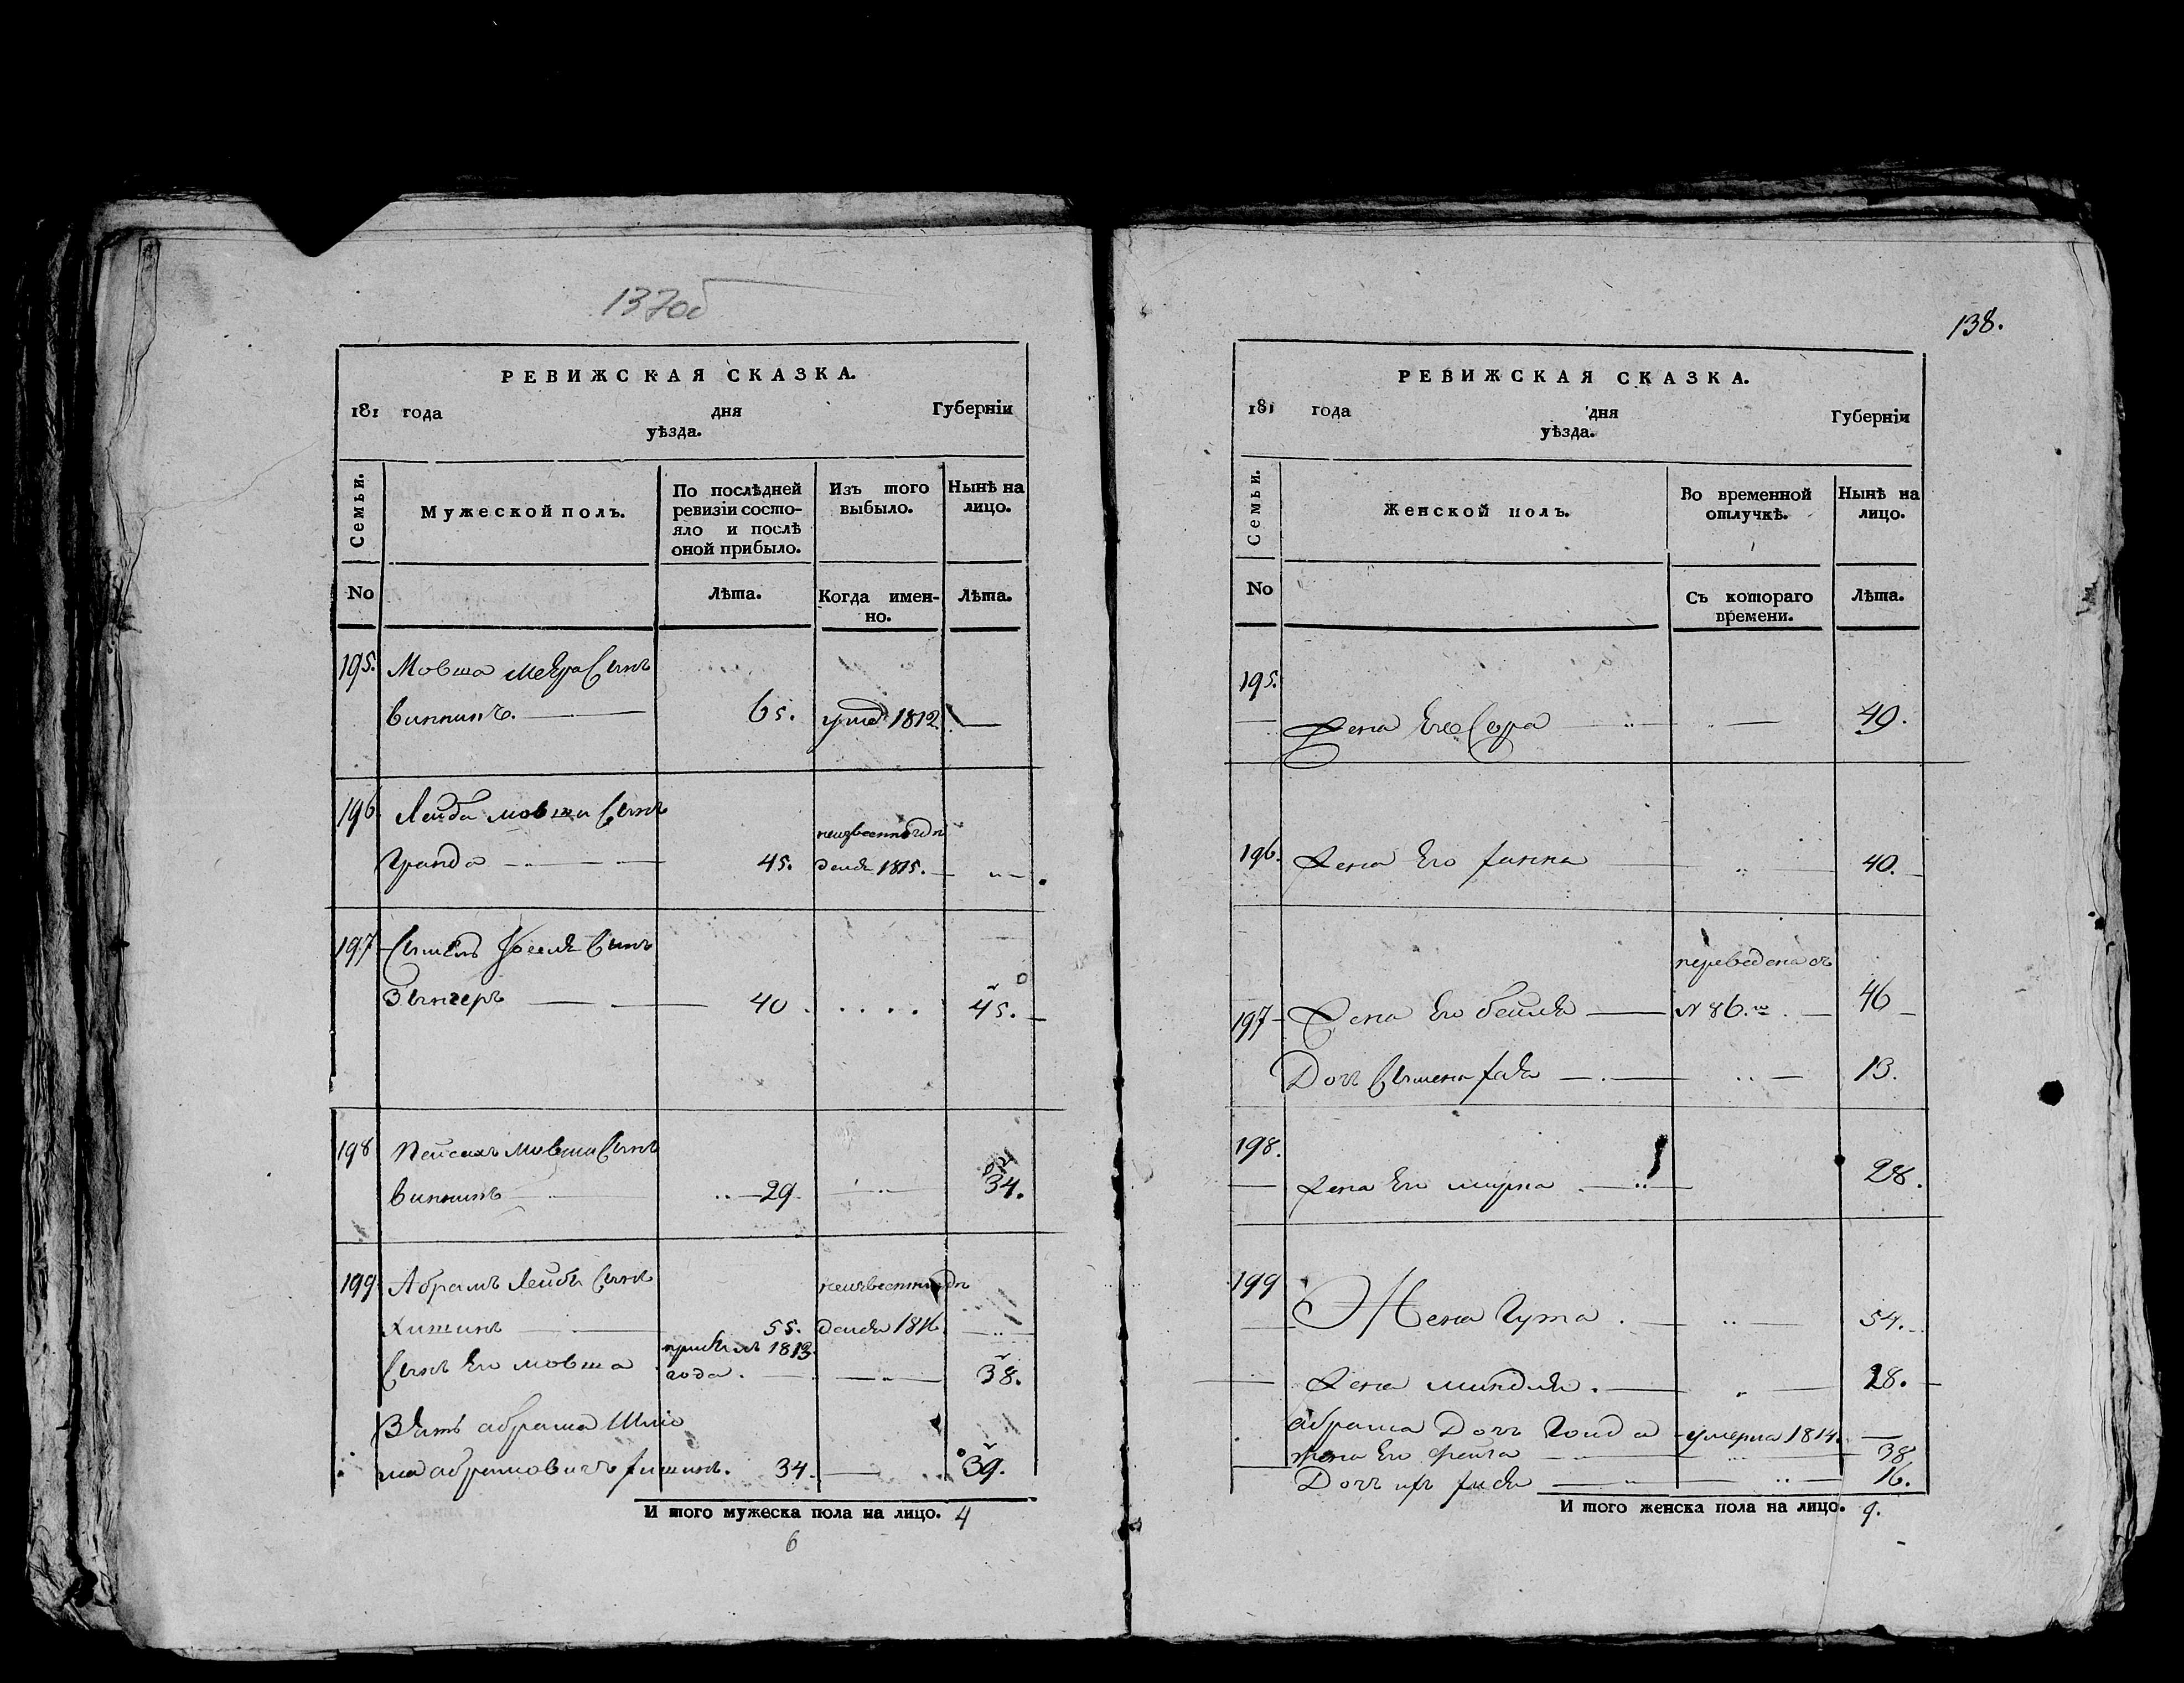 137об
РЕВИЖСКАЯ СКАЗКА.
181 года дня Губерніи
уѣзда.
Семьи. Мужеской полъ. По послѣдней ревизіи состояло и послѣ оной прибыло. Изъ того выбыло. Нынѣ на лицо.
No Лѣта. Когда именно. Лѣта.
195. Мовша меера Сынъ
винникъ. 65. умеръ 1812
196 Лейба мовши Сынъ неизвестно гдѣ
45. 1815.
197 Сынъ
Зингеръ 40 45.
198 Пейсахъ мовши Сынъ
винникъ 29. 34.
199 Абрамъ Лейбы Сынъ неизвестно гдѣ
55. 1816
Сынъ Его мовша прибылъ 1813 года. 38.
Зять абрама Шлио
ма абрамовичъ 34. 39.
И того мужеска пола на лицо. 4
6
138.
РЕВИЖСКАЯ СКАЗКА.
181 года дня Губерніи
уѣзда.
Семьи. Женской полъ. Во временной отлучкѣ. Нынѣ на лицо.
No Съ котораго времени. Лѣта.
195.
Жена Его Сура 49.
196. Жена Его ханна 40.
переведена съ
197 Жена Его бейля N 86. 46
Дочь хая 13.
198.
Жена Его мирка 28.
199
Жена Гута 54.
Жена миндля. 28.
абрама Дочь Голда умерла 1814.
жена Его фейга 38
Дочь ихъ хися 16.
И того женска пола на лицо. 9.